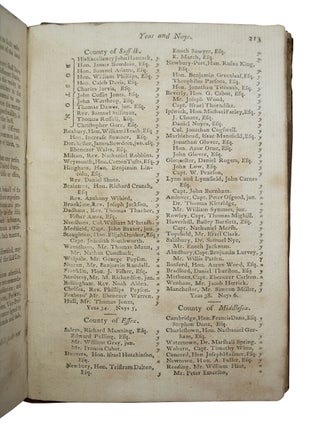 Yeas and Nays. 213
County of Suffolk.
BOSTON
His Excellency John Hancock, y
Hon. James Bowdoin, Esq. y
Hon. Samuel Adams, Esq. y
Hon. William Phillips, Esq. y
Hon. Caleb Davis, Esq. y
Charles Jarvis, Esq. y
John Coffin Jones, Esq. y
John Winthrop, Esq. y
Thomas Dawes, jun. Esq. y
Rev. Samuel Stillman, y
Thomas Russell, Esq. y
Christopher Gore, Esq. y
Roxbury, Hon. William Heath, Esq y
Hon. Increase Sumner, Esq. y
Dorchester, James Bowdoin, jun. Esq. y
Ebenezer Wales, Esq. y
Milton, Rev. Nathaniel Robbins. y
Weymouth, Hon. Cotton Tufts, Esq. y
Hingham, Hon. Benjamin Lincoln, Esq. y
Rev. Daniel Shute. y
Braintree, Hon. Richard Cranch, Esq. y
Rev. Anthony Wibird, y
Brookline, Rev. Joseph Jackson. y
Dedham, Rev. Thomas Thacher, y
Fisher Ames, Esq. y
Medfield, Capt. John Baxter, jun. y
Wrentham, Mr. Thomas Mann, n
Mr. Nathan Comstock, n
Walpole, Mr. George Payson. y
Franklin, Hon. J. Fisher, Esq. y
Bellingham, Rev. Noah Alden. n
Chelsea, Rev. Phillips Payson. y
Foxboro' Mr. Ebenezer Warren. y
Hull, Mr. Thomas Jones. y
Yeas 34. Nays 5.
County of Essex.
Salem, Richard Manning, Esq. y
Edward Pulling, Esq. y
Mr. William Gray, jun. y
Mr. Francis Cabot. y
Danvers, Hon. Israel Hutchinson, Esq. n
Newbury, Hon. Tristram Dalton, Esq. y
Enoch Sawyer, Esq. y
E. March, Esq. y
Newbury-Port, Hon. Rufus King, Esq. y
Hon. Benjamin Greenleaf, Esq. y
Theophilus Parsons, Esq. y
Hon. Jonathan Titcomb, Esq. y
Beverly, Hon. G. Cabot, Esq. y
Mr. Joseph Wood, y
Capt. Israel Thorndike. y
Ipswich, Hon. Michael Farley, Esq. y
J. Choate, Esq. y
Daniel Noyes, Esq. y
Col. Jonathan Cogswell. y
Marblehead, Isaac Mansfield, Esq. y
Jonathan Glover, Esq. y
Hon. Azor Orne, Esq. y
John Glover, Esq. y
Gloucester, Daniel Rogers, Esq. y
John Low, Esq. y
Capt. W. Pearson. y
Lynn and Lynnfield, John Carnes, Esq. y
Capt. John Burnham. y
Andover, Capt. Peter Osgood, jun. n
Dr. Thomas Kittridge, n
Mr. William Symmes, jun. y
Rowley, Capt. Thomas Mighill. n
Haverhill, Bailey Bartlett, Esq. y
Capt. Nathaniel Marsh. y
Topsfield, Mr. Israel Clark. y
Salisbury, Dr. Samuel Nye, y
Mr. Enoch Jackman. y
Almsbury, Capt. Benjamin Lurvey, y
Mr. Willis Patten. y
Boxford, Hon. Aaron Wood, Esq. n
Bradford, Daniel Thurston, Esq. y
Methuen, Capt. Ebenezer Carlton. n
Wenham, Mr. Jacob Herrick. y
Manchester, Mr. Simeon Miller. y
Yeas 38. Nays 6.
County of Middlesex.
Cambridge, Hon. Francis Dana, Esq. y
Stephen Dana, Esq. y
Charlestown, Hon. Nathaniel Gorham, Esq. y
Watertown, Dr. Marshall Spring. n
Woburn, Capt. Timothy Winn. n
Concord, Hon. Joseph Hosmer, Esq. y
Newtown, Hon. A. Fuller, Esq. y
Reading, Mr. William Flint, n
Mr. Peter Emerson. n